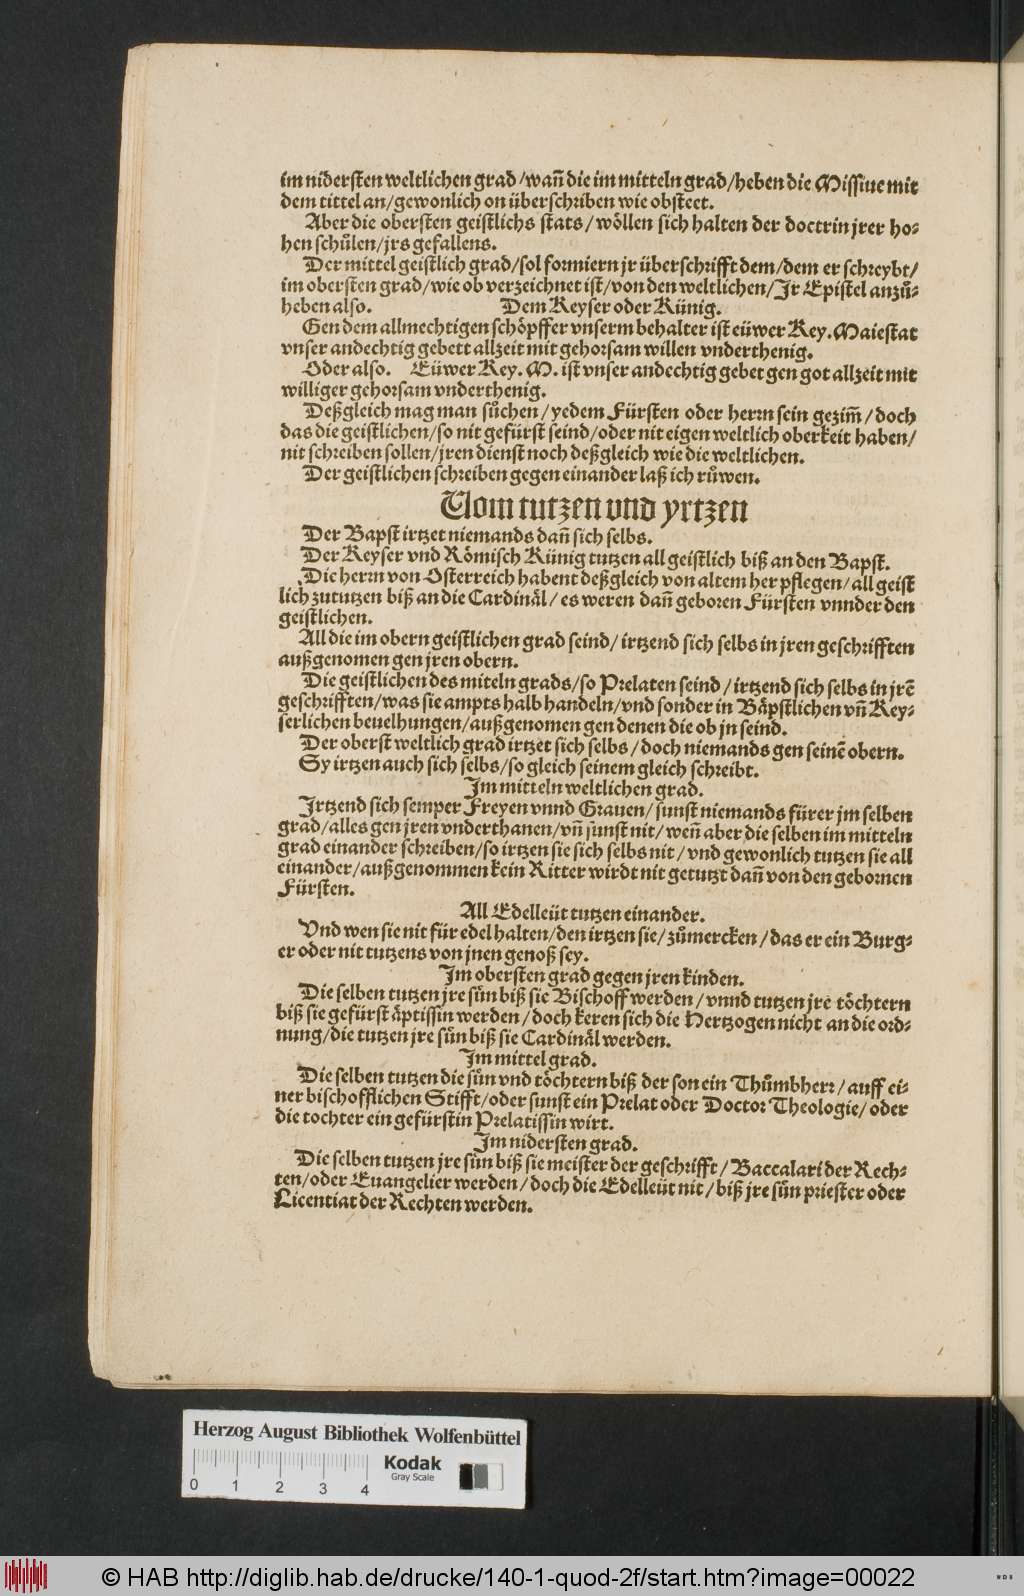 im nidersten weltlichen grad/wañ die im mitteln grad/heben die Missiue mit
dem tittel an/gewonlich on überschriben wie obsteet.
Aber die obersten geistlichs stats/ wöllen sich halten der doctrin jrer ho⸗
hen schůlen/jrs gefallens.
Der mittel geistlich grad/sol formiern jr überschrifft dem/dem er schreybt/
im obersten grad/wie ob verzeichnet ist/von den weltlichen/Jr Epistel anzů⸗
heben also. Dem Keyser oder Künig.
Gen dem allmechtigen schöpffer vnserm behalter ist eüwer Key. Maiestat
vnser andechtig gebett allzeit mit gehorsam willen vnderthenig.
Oder also. Eüwer Key. M. ist vnser andechtig gebet gen got allzeit mit
williger gehorsam vnderthenig.
Deßgleich mag man sůchen/ yedem Fürsten oder herrn sein gezim̃/ doch
das die geistlichen/so nit gefürst seind/oder nit eigen weltlich oberkeit haben/
nit schreiben sollen/jren dienst noch deßgleich wie die weltlichen.
Der geistlichen schreiben gegen einander laß ich růwen.
Vom tutzen vnd yrtzen
Der Bapst irtzet niemands dañ sich selbs.
Der Keyser vnd Römisch Künig tutzen all geistlich biß an den Bapst.
Die herrn von Osterreich habent deßgleich von altem her pflegen/ all geist
lich zututzen biß an die Cardinäl/ es weren dañ geboren Fürsten vnnder den
geistlichen.
All die im obern geistlichen grad seind/ irtzend sich selbs in jren geschrifften
außgenomen gen jren obern.
Die geistlichen des miteln grads/so Prelaten seind/ irtzend sich selbs in jrẽ
geschrifften/was sie ampts halb handeln/vnd sonder in Bäpstlichen vñ Key⸗
serlichen beuelhungen/außgenomen gen denen die ob jn seind.
Der oberst weltlich grad irtzet sich selbs/ doch niemands gen seinẽ obern.
Sy irtzen auch sich selbs/so gleich seinem gleich schreibt.
Im mitteln weltlichen grad.
Irtzend sich semper Freyen vnnd Grauen/ sunst niemands fürer jm selben
grad/alles gen jren vnderthanen/vñ sunst nit/ weñ aber die selben im mitteln
grad einander schreiben/so irtzen sie sich selbs nit/ vnd gewonlich tutzen sie all
einander/außgenommen kein Ritter wirdt nit getutzt dañ von den gebornen
Fürsten.
All Edelleüt tutzen einander.
Vnd wen sie nit für edel halten/den irtzen sie/ zůmercken/ das er ein Burg⸗
er oder nit tutzens von jnen genoß sey.
Im obersten grad gegen jren kinden.
Die selben tutzen jre sün biß sie Bischoff werden/ vnnd tutzen jre töchtern
biß sie gefürst äptissin werden/ doch keren sich die Hertzogen nicht an die ord⸗
nung/die tutzen jre sün biß sie Cardinäl werden.
Im mittel grad.
Die selben tutzen die sün vnd töchtern biß der son ein Thůmbherr/ auff ei⸗
ner bischofflichen Stifft/oder sunst ein Prelat oder Doctor Theologie/ oder
die tochter ein gefürstin Prelatissin wirt.
Im nidersten grad.
Die selben tutzen jre sün biß sie meister der geschrifft/ Baccalari der Rech⸗
ten/oder Euangelier werden/ doch die Edelleüt nit/ biß jre sün priester oder
Licentiat der Rechten werden.
Herzog August Bibliothek Wolfenbüttel
Kodak
Gray Scale
0 1 2 3 4
© HAB http://diglib.hab.de/drucke/140-1-quod-2f/start.htm?image=00022